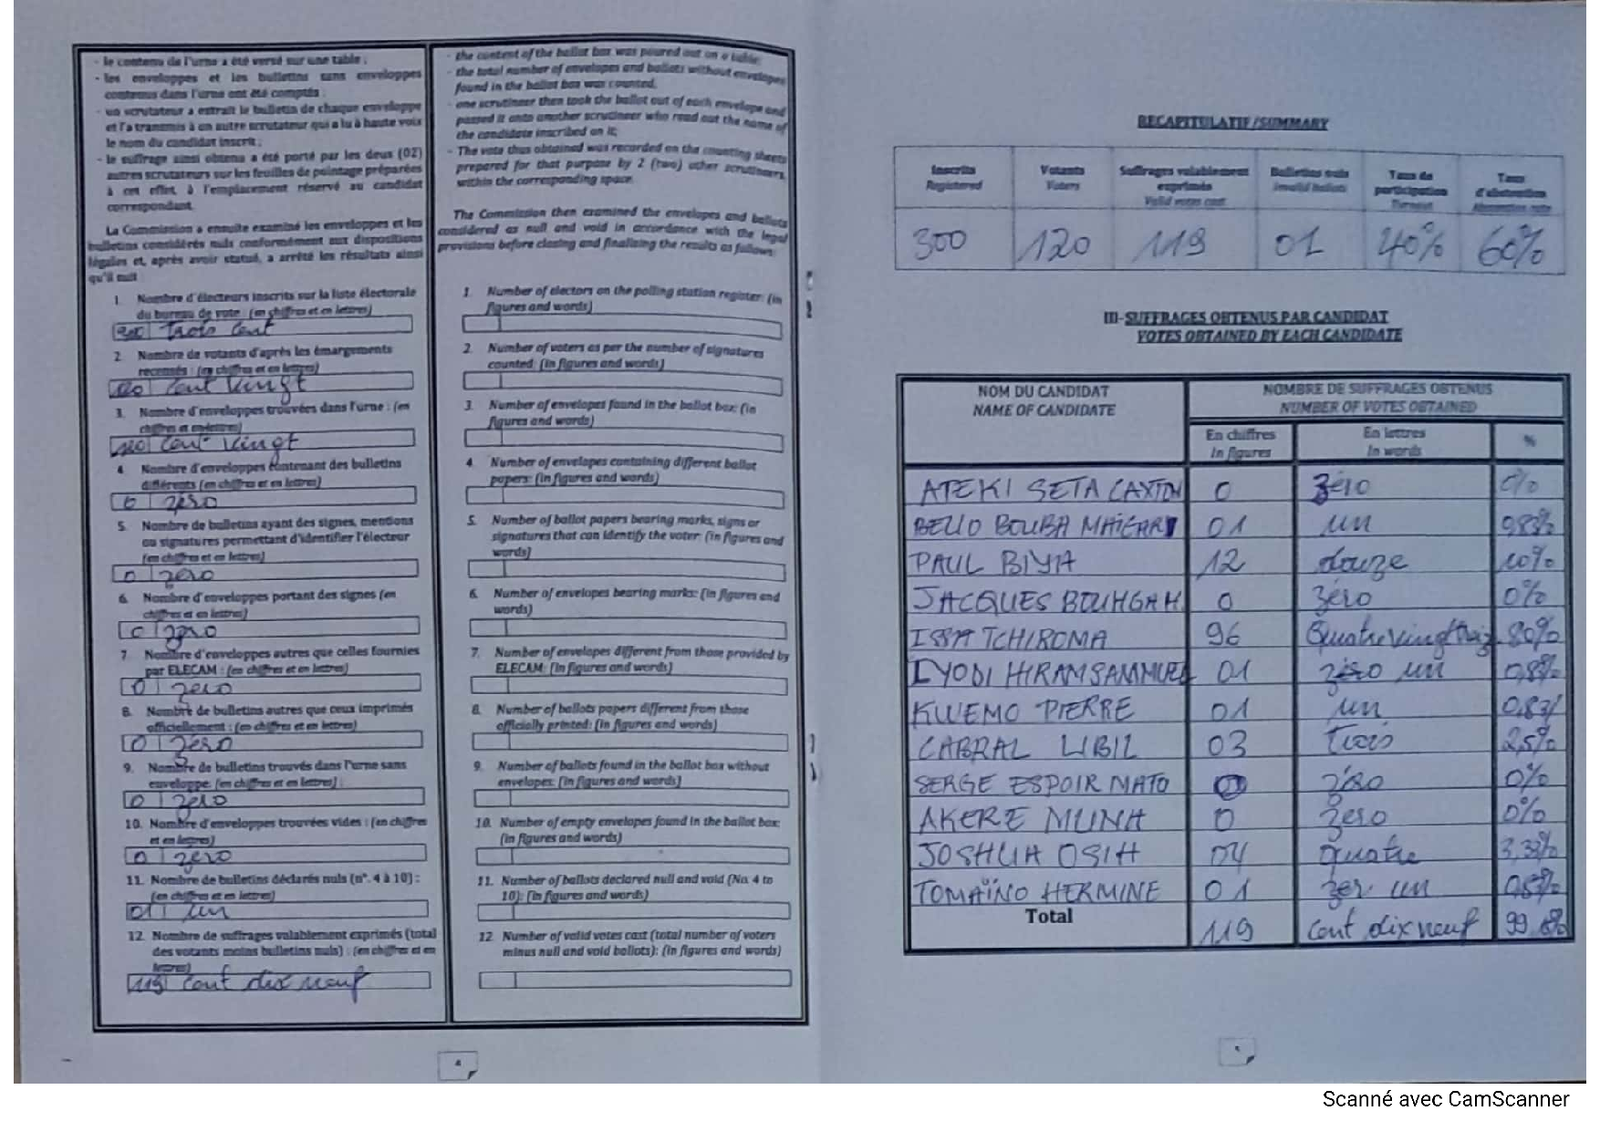 - le contenu de l'urne a été versé sur une table ;
- les enveloppes et les bulletins sans enveloppes
contenus dans l'urne ont été comptés ;
- un scrutateur a extrait le bulletin de chaque enveloppe
et l'a transmis à un autre scrutateur qui a lu à haute voix
le nom du candidat inscrit ;
- le suffrage ainsi obtenu a été porté par les deux (02)
autres scrutateurs sur les feuilles de pointage préparées
à cet effet, à l'emplacement réservé au candidat
correspondant.
La Commission a ensuite examiné les enveloppes et les
bulletins considérés nuls conformément aux dispositions
légales et, après avoir statué, a arrêté les résultats ainsi
qu'il suit
1. Nombre d'électeurs inscrits sur la liste électorale
du bureau de vote : (en chiffres et en lettres)
300 Trois cent
2. Nombre de votants d'après les émargements
recensés : (en chiffres et en lettres)
120 cent vingt
3. Nombre d'enveloppes trouvées dans l'urne : (en
chiffres et en lettres)
120 cent vingt
4. Nombre d'enveloppes contenant des bulletins
différents (en chiffres et en lettres)
0 zéro
5. Nombre de bulletins ayant des signes, mentions
ou signatures permettant d'identifier l'électeur
(en chiffres et en lettres)
0 zéro
6. Nombre d'enveloppes portant des signes (en
chiffres et en lettres)
0 zéro
7. Nombre d'enveloppes autres que celles fournies
par ELECAM : (en chiffres et en lettres)
0 zero
8. Nombre de bulletins autres que ceux imprimés
officiellement : (en chiffres et en lettres)
0 zéro
9. Nombre de bulletins trouvés dans l'urne sans
enveloppe. (en chiffres et en lettres) :
0 zéro
10. Nombre d'enveloppes trouvées vides : (en chiffres
et en lettres)
0 zero
11. Nombre de bulletins déclarés nuls (n°. 4 à 10) :
(en chiffres et en lettres)
01 un
12. Nombre de suffrages valablement exprimés (total
des votants moins bulletins nuls) : (en chiffres et en
lettres)
119 cent dix neuf
- the content of the ballot box was poured out on a table;
- the total number of envelopes and ballots without envelopes
found in the ballot box was counted,
- one scrutineer then took the ballot out of each envelope and
passed it onto another scrutineer who read out the name of
the candidate inscribed on it;
- The vote thus obtained was recorded on the counting sheets
prepared for that purpose by 2 (two) other scrutineers,
within the corresponding space.
The Commission then examined the envelopes and ballots
considered as null and void in accordance with the legal
provisions before closing and finalizing the results as follows:
1. Number of electors on the polling station register: (in
figures and words)
2. Number of voters as per the number of signatures
counted: (in figures and words)
3. Number of envelopes found in the ballot box: (in
figures and words)
4. Number of envelopes containing different ballot
papers: (in figures and words)
5. Number of ballot papers bearing marks, signs or
signatures that can identify the voter: (in figures and
words)
6. Number of envelopes bearing marks: (in figures and
words)
7. Number of envelopes different from those provided by
ELECAM: (in figures and words)
8. Number of ballots papers different from those
officially printed: (in figures and words)
9. Number of ballots found in the ballot box without
envelopes: (in figures and words)
10. Number of empty envelopes found in the ballot box:
(in figures and words)
11. Number of ballots declared null and void (No. 4 to
10): (in figures and words)
12. Number of valid votes cast (total number of voters
minus null and void ballots): (in figures and words)
4
RECAPITULATIF/SUMMARY
Inscrits Registered | Votants Voters | Suffrages valablement exprimés Valid votes cast | Bulletins nuls Invalid ballots | Taux de participation Turnout | Taux d'abstention Abstention rate
300 120 119 01 40% 60%
III- SUFFRAGES OBTENUS PAR CANDIDAT
VOTES OBTAINED BY EACH CANDIDATE
NOM DU CANDIDAT NOMBRE DE SUFFRAGES OBTENUS
NAME OF CANDIDATE NUMBER OF VOTES OBTAINED
En chiffres En lettres %
In figures In words
ATEKI SETA CAXTON 0 zéro 0%
BELLO BOUBA MAIGARI 01 un 0,83%
PAUL BIYA 12 douze 10%
JACQUES BOUHGAH 0 zéro 0%
ISSA TCHIROMA 96 80%
LYODI HIRAM SAMMUEL 01 zéro un 0,8%
KWEMO PIERRE 01 un 0,83%
CABRAL LIBII 03 trois 2,5%
SERGE ESPOIR MATO 0 zéro 0%
AKERE MUNA 0 zéro 0%
JOSHUA OSIH 04 quatre 3,3%
TOMAÏNO HERMINE 01 un
Total 119 cent dix neuf
Scanné avec CamScanner